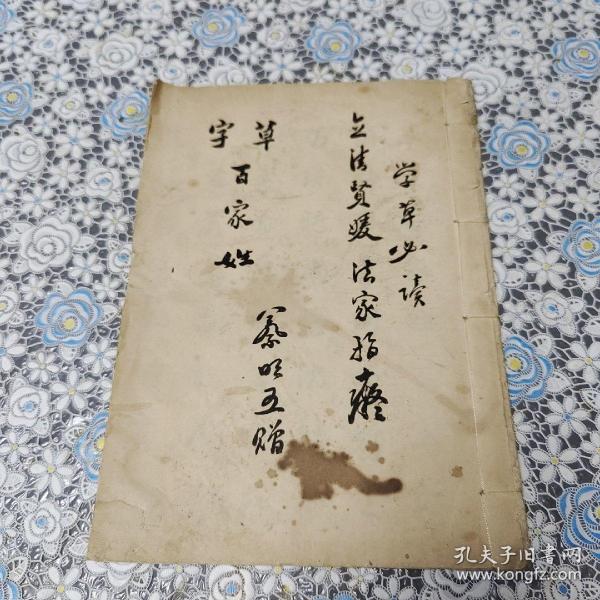 学草必读
立清贤媛法家指疵
草字
百家姓
綦明五赠
孔夫子旧书网
www.kongfz.com